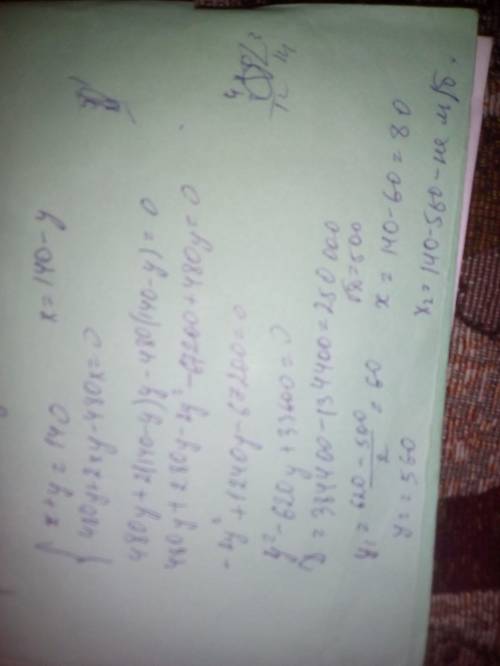 { x+y=140 x=140-y
480y+2xy-480x=0
480y+2(140-y)y-480(140-y)=0
480y+280y-2y²-67200+480y=0
-2y²+1240y-67200=0
y²-620y+33600=0
D=384400-134400=250 000 √D=500
y₁=620-500/2=60 x=140-60=80
y₂=560 x₂=140-560-не м/б.